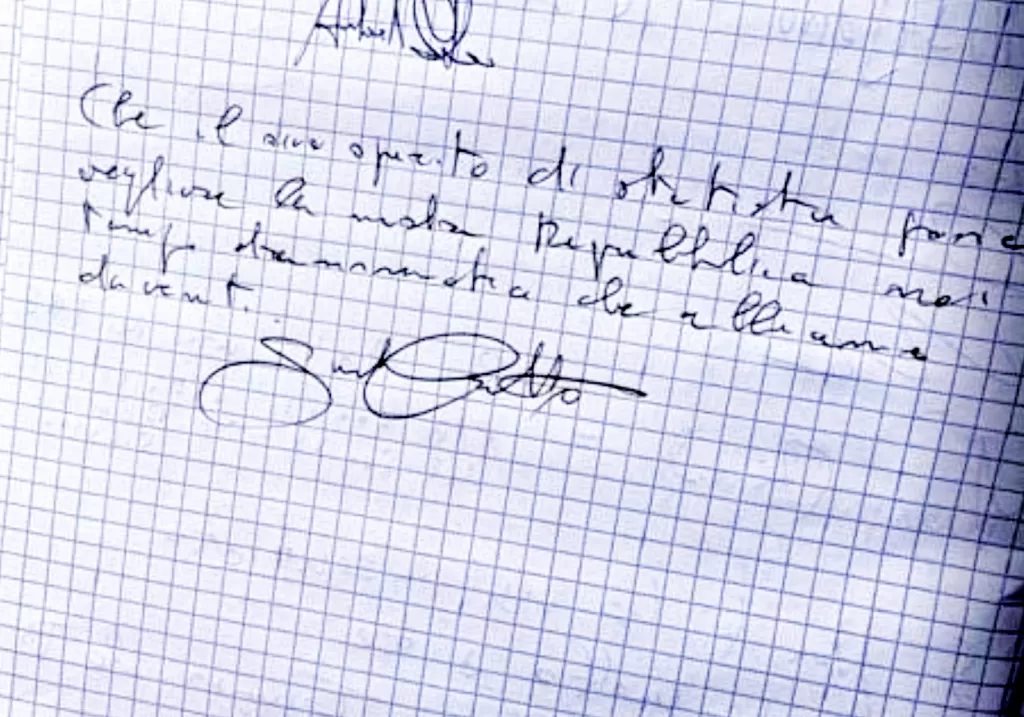 Che il suo operato di statista possa
vegliare la nostra Repubblica nei
tempi drammatici che abbiamo
davanti.